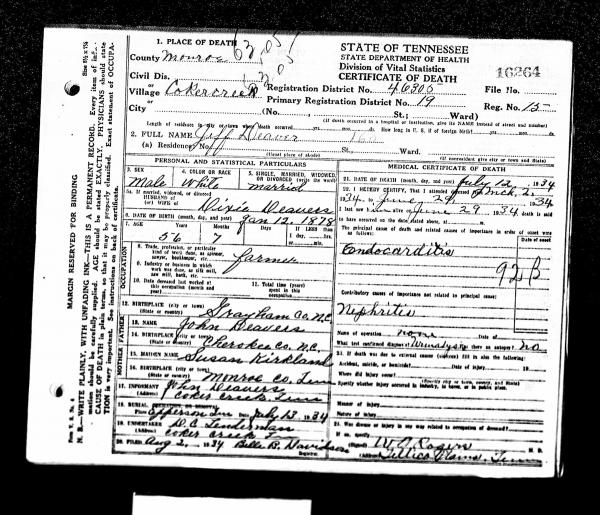 1. PLACE OF DEATH
County Monroe
Civil Dis.
Village or Cokercreek
City
(No., St.; Ward)
STATE OF TENNESSEE
STATE DEPARTMENT OF HEALTH
Division of Vital Statistics
CERTIFICATE OF DEATH
16264
Registration District No. 46305
File No.
Primary Registration District No. 19
Reg. No. 15
2. FULL NAME Jeff Deaver
(a) Residence. No. St. Ward.
(Usual place of abode)
(If nonresident give city or town and State)
PERSONAL AND STATISTICAL PARTICULARS
3. SEX
Male
4. COLOR OR RACE
White
5. SINGLE, MARRIED, WIDOWED, OR DIVORCED (write the word)
married
5a. If married, widowed, or divorced
HUSBAND of
(or) WIFE of Dixie Deavers
6. DATE OF BIRTH (month, day, and year) Jan 12, 1878
7. AGE Years Months Days If LESS than
56 7
OCCUPATION
8. Trade, profession, or particular kind of work done, as spinner, sawyer, bookkeeper, etc. farmer
9. Industry or business in which work was done, as silk mill, saw mill, bank, etc.
10. Date deceased last worked at this occupation (month and year)
11. Total time (years) spent in this occupation
12. BIRTHPLACE (city or town)
(State or country) Grayham Co N.C.
FATHER
13. NAME John Deavers
14. BIRTHPLACE (city or town)
(State or country) Cherokee Co. N.C.
MOTHER
15. MAIDEN NAME Susan Kirkland
16. BIRTHPLACE (city or town)
(State or country) Monroe Co, Tenn
17. INFORMANT John Deavers
(Address) coker creek, Tenn
18. BURIAL
Place Epperson Tenn Date July 13 1934
19. UNDERTAKER D.C. Lenderman
(Address) coker creek
20. FILED Aug 2, 1934 Belle B. Davidson
Registrar
MEDICAL CERTIFICATE OF DEATH
21. DATE OF DEATH (month, day, and year) July 12 1934
22. I HEREBY CERTIFY, That I attended deceased from 2,
1934, to June 29 1934
I last saw alive on June 29 1934 death is said
to have occurred on the date stated above, at
The principal cause of death and related causes of importance in order of onset were as follows:
Date of onset
Endocarditis
92B
Contributory causes of importance not related to principal cause:
Nephritis
Name of operation none Date of
What test confirmed diagnosis? Urinalysis Was there an autopsy? no
23. If death was due to external causes (violence) fill in also the following:
Accident, suicide, or homicide? Date of injury 19
Where did injury occur?
(Specify city or town, county, and State)
Specify whether injury occurred in industry, in home, or in public place.
Manner of injury
Nature of injury
24. Was disease or injury in any way related to occupation of deceased?
If so, specify
(Signed) W.A. Rogers M. D.
(Address) Tellico Plains, Tenn
MARGIN RESERVED FOR BINDING
N. B.—WRITE PLAINLY, WITH UNFADING INK—THIS IS A PERMANENT RECORD. Every item of information should be carefully supplied. AGE should be stated EXACTLY. PHYSICIANS should state CAUSE OF DEATH in plain terms, so that it may be properly classified. Exact statement of OCCUPATION is very important. See instructions on back of certificate.